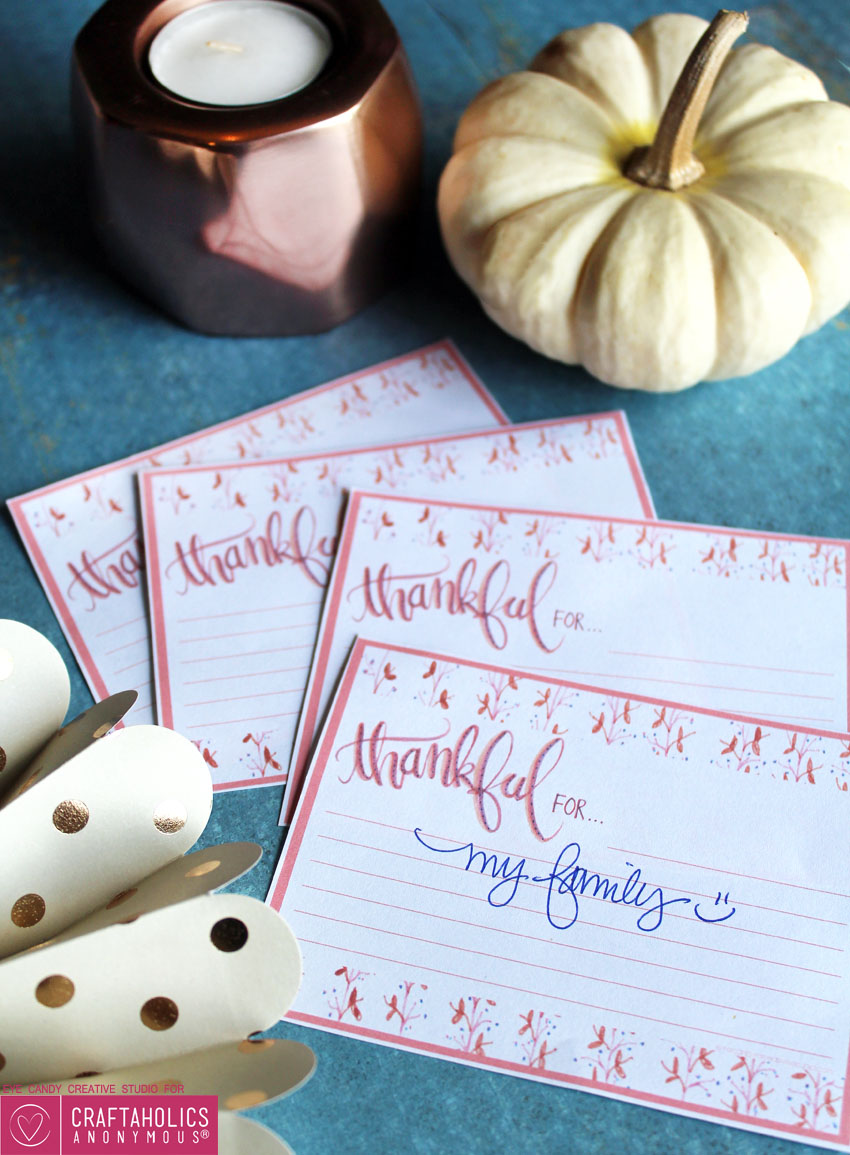 thankful
thankful
thankful FOR...
thankful FOR...
my family
EYE CANDY CREATIVE STUDIO FOR
CRAFTAHOLICS
ANONYMOUS®